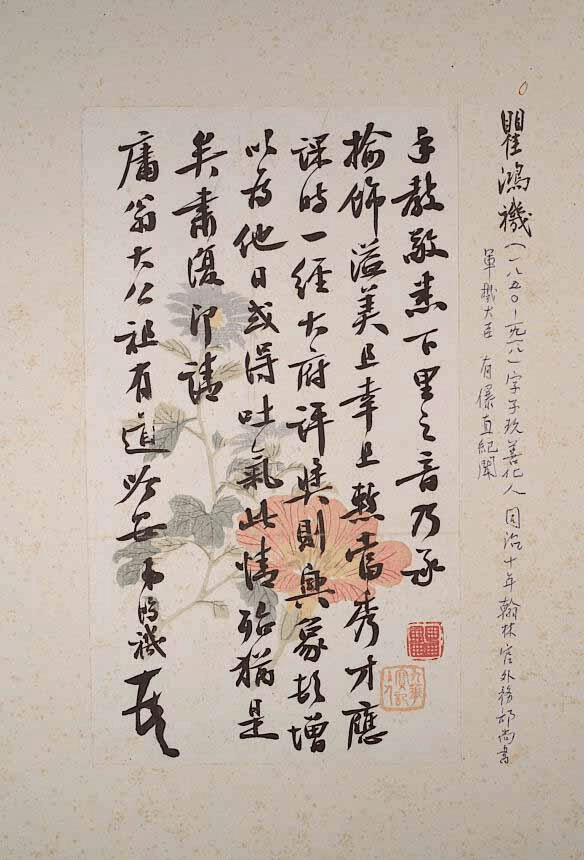 瞿鴻禨(一八五〇-一九一八)字子玖善化人 同治十年翰林官外務部尚書
軍機大臣 有儤直紀聞
手教敬悉下里之音乃承
揄飾溢美且幸且慙當秀才應
課時一經大府評奬則興象頓增
以為他日或得吐氣此情殆猶是
矣肅復即請
庸翁大公祖有道吟安 弟鴻禨